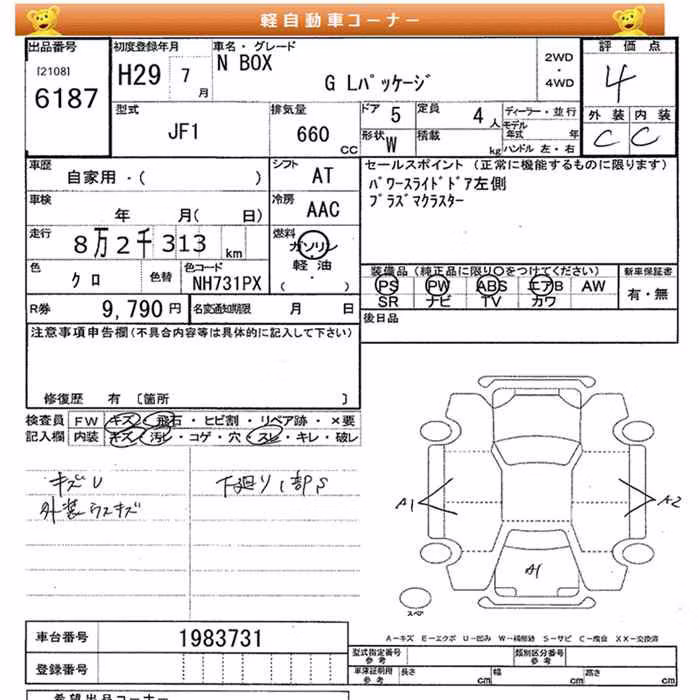 軽自動車コーナー
出品番号
[2108]
6187
初度登録年月
H29 7 月
車名・グレード
N BOX
G Lパッケージ
2WD
・
4WD
評価点
4
外装 内装
C C
型式
JF1
排気量
660 CC
ドア 5
定員 4 人
形状 W
積載 kg
ディーラー・並行
モデル年式 年
ハンドル 左・右
車歴
自家用・( )
シフト AT
車検
年 月( 日)
冷房 AAC
走行
8万2千313 km
燃料
ガソリン
・
軽油
・
( )
色
クロ
色替
色コード
NH731PX
セールスポイント (正常に機能するものに限ります)
パワースライドドア左側
プラズマクラスター
装備品 (純正品に限り○をつけてください)
新車保証書
PS PW ABS エアB AW
SR ナビ TV カワ
有・無
R券 9,790 円
名変通知期限 月 日
後日品
注意事項申告欄 (不具合内容等は具体的に記入して下さい)
修復歴 有 [箇所 ]
検査員
記入欄
FW キズ・飛石・ヒビ割・リペア跡・×要
内装 キズ・汚レ・コゲ・穴・スレ・キレ・破レ
キズU
外装ウスキズ
下廻り1部S
A1
A2
A1
スペア
A-キズ E-エクボ U-凹み W-補修跡 S-サビ C-腐食 XX-交換済
車台番号 1983731
登録番号
型式指定番号
参考
類別区分番号
参考
車庫証明用
参考
長さ cm
幅 cm
高さ cm
希望出品コーナー